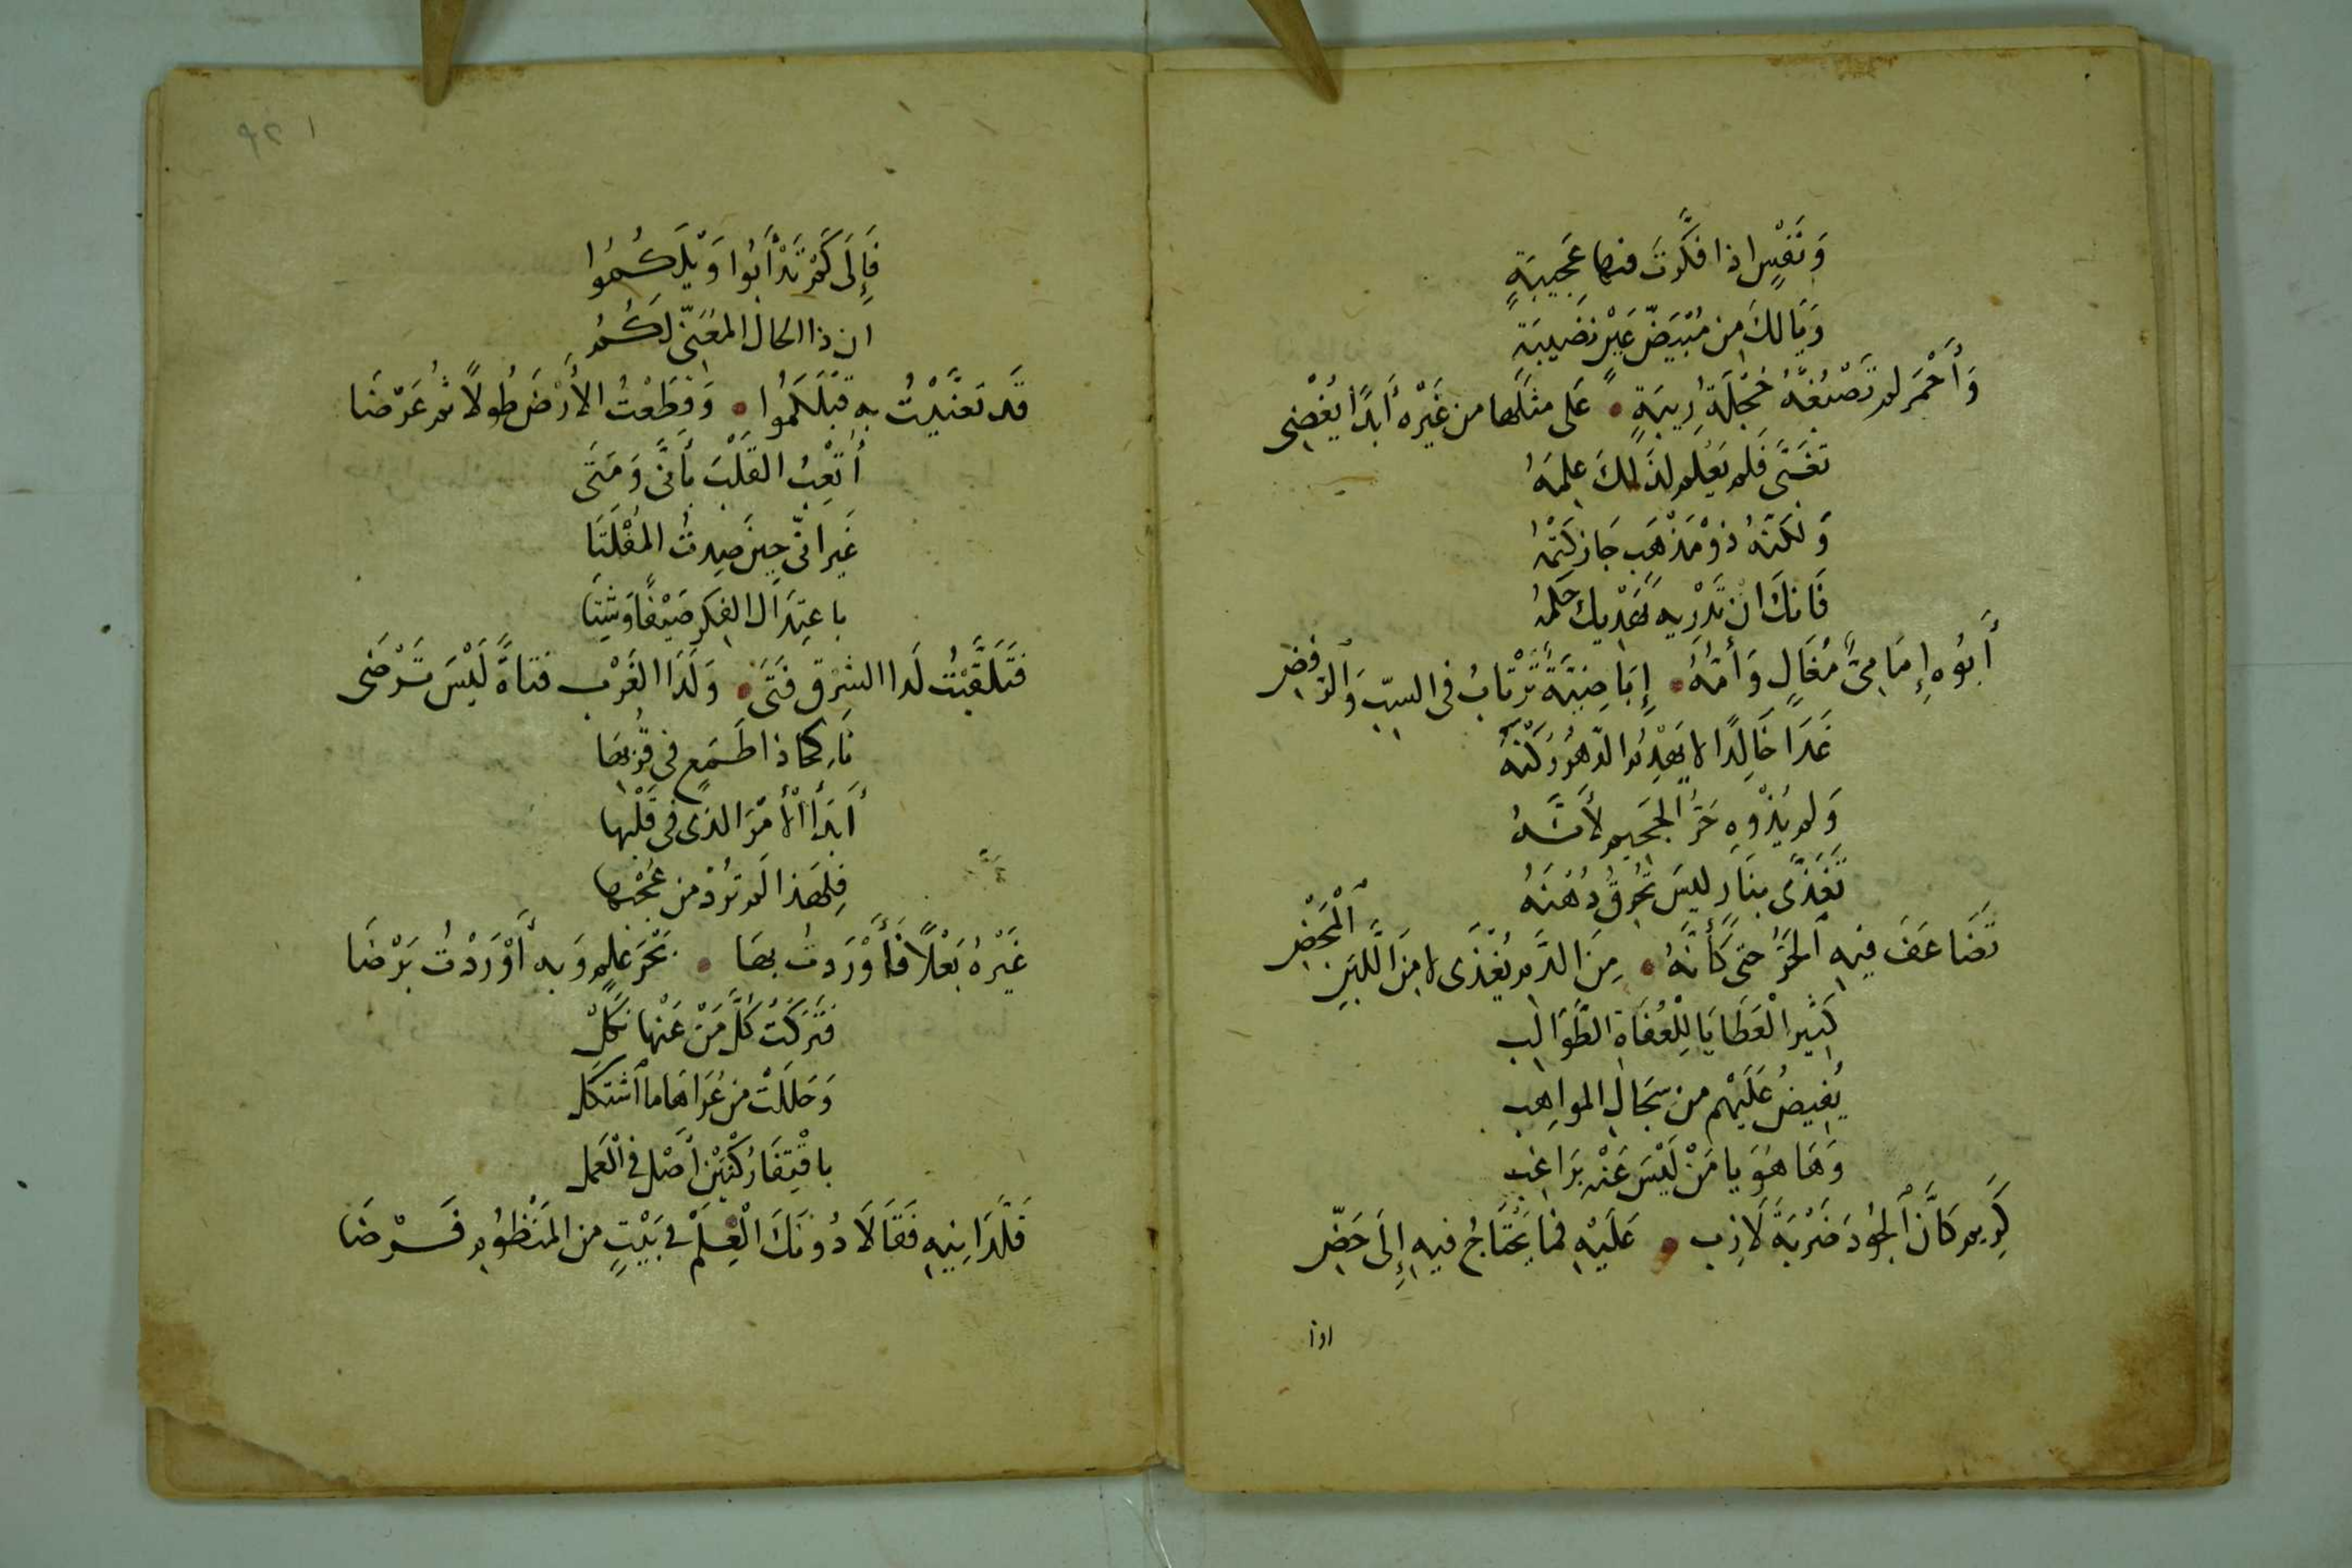 وَنَفْسٍ اذا فكَّرتَ فيها عَجِيبَةٍ
وَيَالكَ مِن مُبْيَضّ غَيْرِ نضِيبَةٍ
وَأَحْمَرَ لم تَصْبُغْهُ خَجْلَةُ رِيبَةٍ ۰ عَلى مثلها من غَيْرِه أَبَدًا يُغْضِى
تغَنَّى فَلم يَعْلم لذلكَ عِلمَهُ
وَلكنّهُ ذوْ مَذْهَب جَاز كَتْمُهُ
فَانكَ ان تَدْرِيهِ يَهْدِيك حُكمُهُ
أَبُوه إِمَامِىٌّ مُغَالٍ وَأُمُّهُ ۰ إِبَاضِيَّةٌ تَرْتَابُ فى السبّ وَالرفضِ
غَدَا خَالِدًا لا يَهْدِمُ الدّهرُ رُكْنَهُ
وَلم يُذْوِهِ حَرُّ الجَحِيم لأَنَّهُ
تَغَذّى بنَار ليسَ تُحْرِقُ دُهْنَهُ
تَضَاعَفَ فيهِ الحَرُّ حتى كَأَنَّهُ ۰ مِنَ الدَّم يُغْذَى لا مِنَ اللَّبَنِ الْمَحْضِ
كَثِيرِ الْعَطَايَا لِلْعُفَاةِ الطَّوَالِب
يُفِيضُ عَلَيْهم من سِجَالِ المواهِب
وَهَا هُوَ يا مَنْ لَيْسَ عَنْهُ بِرَاغِب
كَرِيم كَأَنَّ الجُودَ ضَرْبَةَ لَازِب ۰ عَلَيْهِ فما يَحْتَاجُ فيهِ إِلَى حَضِّ
اذا
فَإِلَى كَمْ تَدْأَبُوا وَيْلَكُمُوا
ان ذا الحَال المُعَنّى لَكُمُ
قَد تعَنَّيْتُ به قبْلَكُمُوا ۰ وَقطَعْتُ الأَرْضَ طُولًا ثم عَرْضَا
أُتْعِبُ القَلْبَ بأَنَّى وَمَتَى
غَير انّى حِينَ صِدتُ المُفْلَتَا
باعتِدَال الفِكر صَيْفًا وَشِتَا
فَتَلَقَّيْتُ لَدا الشرْق فَتَى ۰ وَلَدَا الغَرْب فتاةً لَيْسَ تَرْضَى
نَاكحًا ذا طَمَعٍ فى قُرْبِهَا
أَبَدًا الأَمْرَ الذى فى قَلْبِها
فِلهَذا لَم تُرِدْ من عُجْبِها
غَيْرهُ بَعْلًا فَأَوْرَدتُ بهَا ۰ بَحْرَ عِلمٍ وَبهِ أَوْرَدْتُ بَرْضَا
فَتَرَكتُ كلَّ مَنْ عَنْها نَكَلْ
وَحَلَلَتْ من عُرَاهَا ما اشتكَل
باقْتِفَا رُكْنَيْنِ أَصْل فى الْعَمَل
فَلَّدَانِيهِ فَقَالَا دُونَكَ الْعِلمْ فى بَيْتٍ من المَنْظُوم فَرْضَا